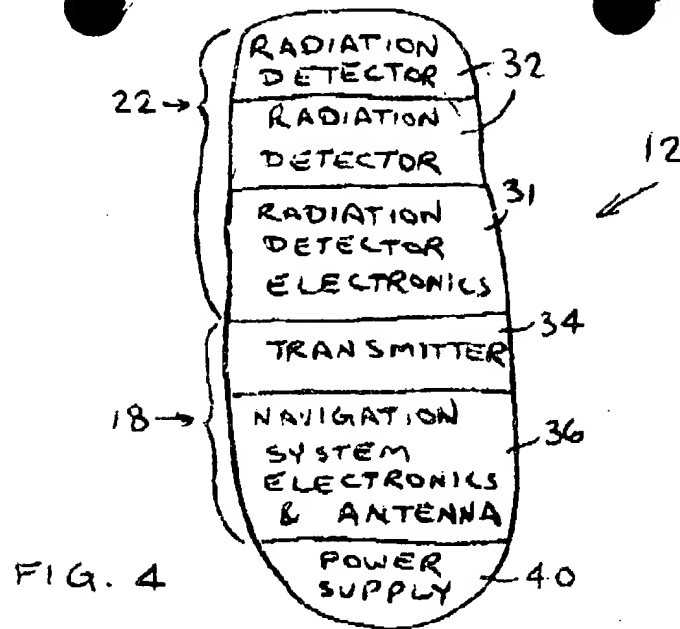 RADIATION
DETECTOR
32
22
RADIATION
DETECTOR
12
RADIATION
DETECTOR
ELECTRONICS
31
34
TRANSMITTER
18
NAVIGATION
SYSTEM
ELECTRONICS
& ANTENNA
36
POWER
SUPPLY
40
FIG. 4